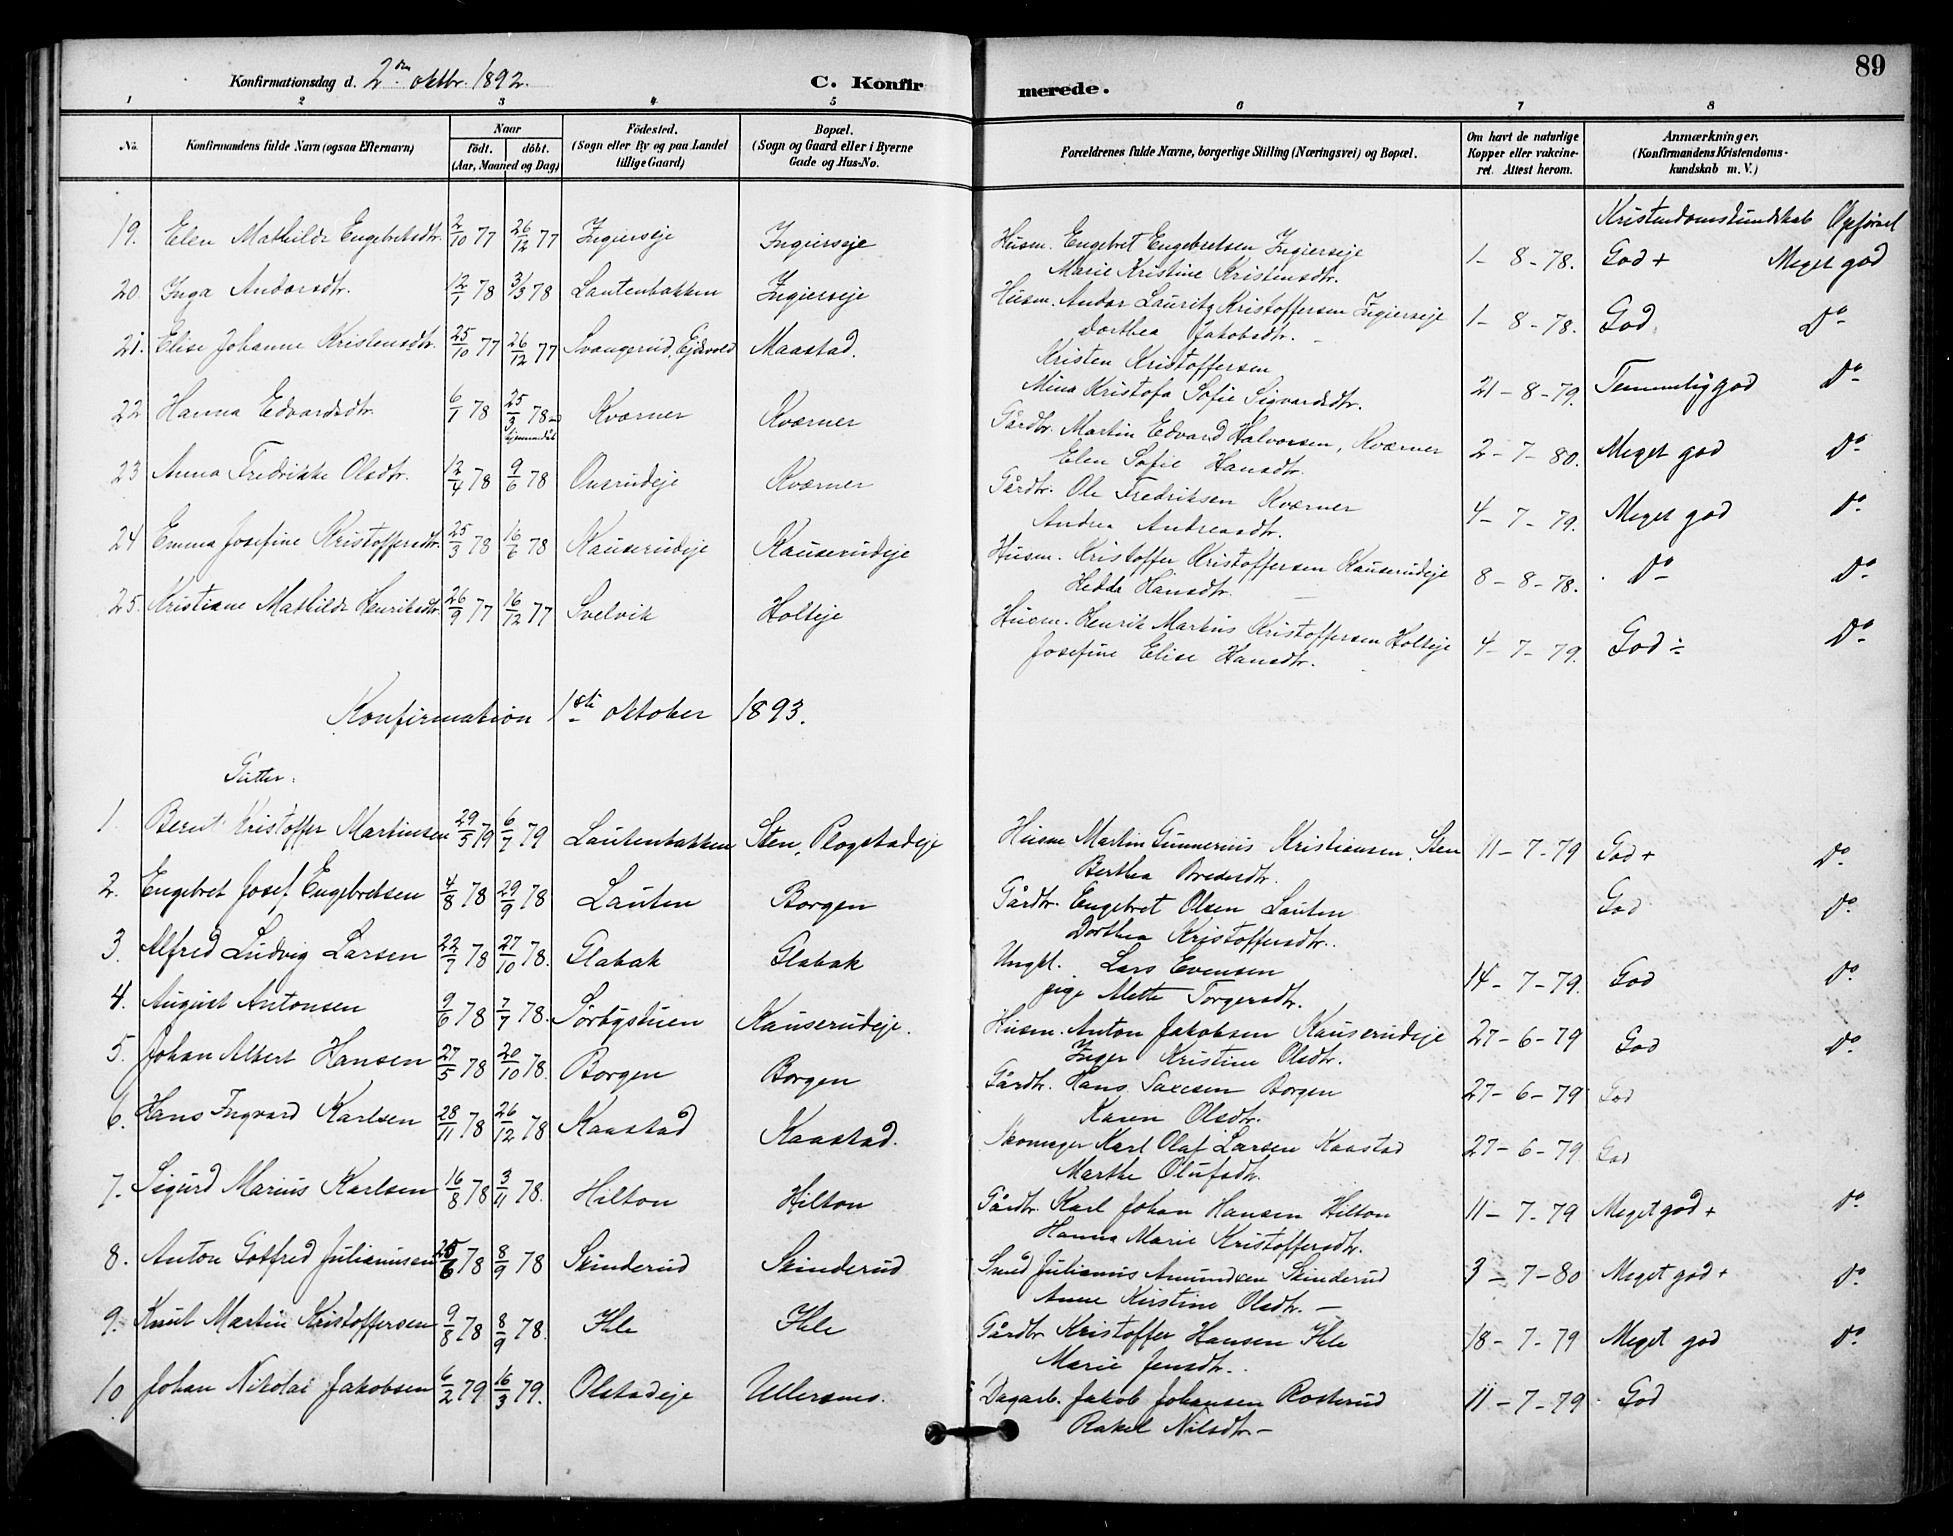 89
Konfirmationsdag d. 2den oktbr. 1892.
C. Konfirmerede.
1 2 3 4 5 6 7 8
No. Konfirmandens fulde Navn (ogsaa Efternavn) Naar födt. döbt. (Aar, Maaned og Dag) Födested. (Sogn eller By og paa Landet tillige Gaard) Bopæl. (Sogn og Gaard eller i Byerne Gade og Hus-No. Forældrenes fulde Navne, borgerlige Stilling (Næringsvei) og Bopæl. Om havt de naturlige Kopper eller vakcineret. Attest herom. Anmærkninger. (Konfirmandens Kristendomskundskab m. V.)
Kristendomskundskab Opförsel
19. Elen Mathilde Engebretsdtr. 2/10 77 26/12 77 Ingierseje Ingierseje Husm. Engebret Engebretsen Ingierseje 1 - 8 - 78. God + Meget god
Marie Kristine Kristensdtr.
20. Inga Andorsdtr. 12/1 78 3/3 78 Lautenbakken Ingierseje Husm. Andor Lauritz Kristoffersen Ingierseje 1 - 8 - 78. God. Do
Dorthea Jakobsdtr. -
21. Elise Johanne Kristensdtr. 25/10 77 26/12 77 Svangerud, Ejdsvold Maastad. Kristen Kristoffersen 21 - 8 - 79. Temmelig god Do
Mina Kristofa Sofie Sigvardsdtr.
22 Hanna Edvardsdtr. 6/1 78 25/3 78 hjemmedöbt Kværner Kværner Gårdbr. Martin Edvard Halvorsen, Kværner 2 - 7 - 80. Meget god Do
Elen Sofie Hansdtr.
23 Anna Fredrikke Olsdtr. 12/4 78 9/6 78 Onsrudeje Kværner Gårdbr. Ole Fredriksen Kværner 4 - 7 - 79. Meget god Do
Andrea Andreasdtr.
24 Emma Josefine Kristoffersdtr. 25/3 78 16/6 78 Kauserudeje Kauserudeje Husm. Kristoffer Kristoffersen Kauserudeje 8 - 8 - 78. Do Do
Hedda Hansdtr. -
25. Kristiane Mathilde Henriksdtr. 26/9 77 16/12 77 Svelvik Holteje Husm. Henrik Martins Kristoffersen Holteje 4 - 7 - 79. God ÷ Do
Josefine Elise Hansdtr. -
Konfirmation 1ste oktober 1893.
Gutter.
1. Bernt Kristoffer Martinsen 29/5 79 6/7 79 Lautenbakken Sten, Plogstadeje Husm Martin Gunnerius Kristiansen, Sten 11 - 7 - 79 God + Do
Berthea Bredesdtr.
2. Engebret Josef Engebretsen 4/8 78 29/9 78 Lauten Borgen Gårdbr. Engebret Olsen Lauten God Do
Dorthea Kristoffersdtr.
3. Alfred Ludvig Larsen 22/7 78 27/10 78. Glabak Glabak Ungkl. Lars Evensen 14 - 7 - 79. God Do
pige Mette Torgersdtr.
4. August Antonsen 9/6 78 7/7 78. Sörbystuen Kauserudeje. Husm. Anton Jakobsen Kauserudeje 27 - 6 - 79 God Do
Inger Kristine Olsdtr.
5. Johan Albert Hansen 27/5 78 20/10 78. Borgen Borgen Gårdbr. Hans Saxesen Borgen 27 - 6 - 79 God
Karen Olsdtr.
6. Hans Ingvard Karlsen 28/11 78 26/12 78 Kaastad Kaastad. Skomager Karl Olaf Larsen Kaastad 27 - 6 - 79 God
Marthe Olufsdtr.
7. Sigurd Marius Karlsen 16/8 78 3/11 78. Hilton Hilton Gårdbr. Karl Johan Hansen Hilton 11 - 7 - 79 Meget god + Do
Hanna Marie Kristoffersdtr.
8. Anton Gotfred Julianusen 25/6 78 8/9 78 Skinderud Skinderud Smed Julianus Amundsen Skinderud 3 - 7 - 80 Meget god + Do
Anne Kirstine Olsdtr. -
9. Knut Martin Kristoffersen 9/8 78 8/9 78. Ihle Ihle Gårdbr Kristoffer Hansen Ihle 18 - 7 - 79 Meget god Do
Marie Jensdtr.
10 Johan Nikolai Jakobsen 6/2 79 16/3 79. Olstadeje Ullersmo. Dagarb. Jakob Johansen Rosterud 11 - 7 - 79 God
Rakel Nilsdtr. -